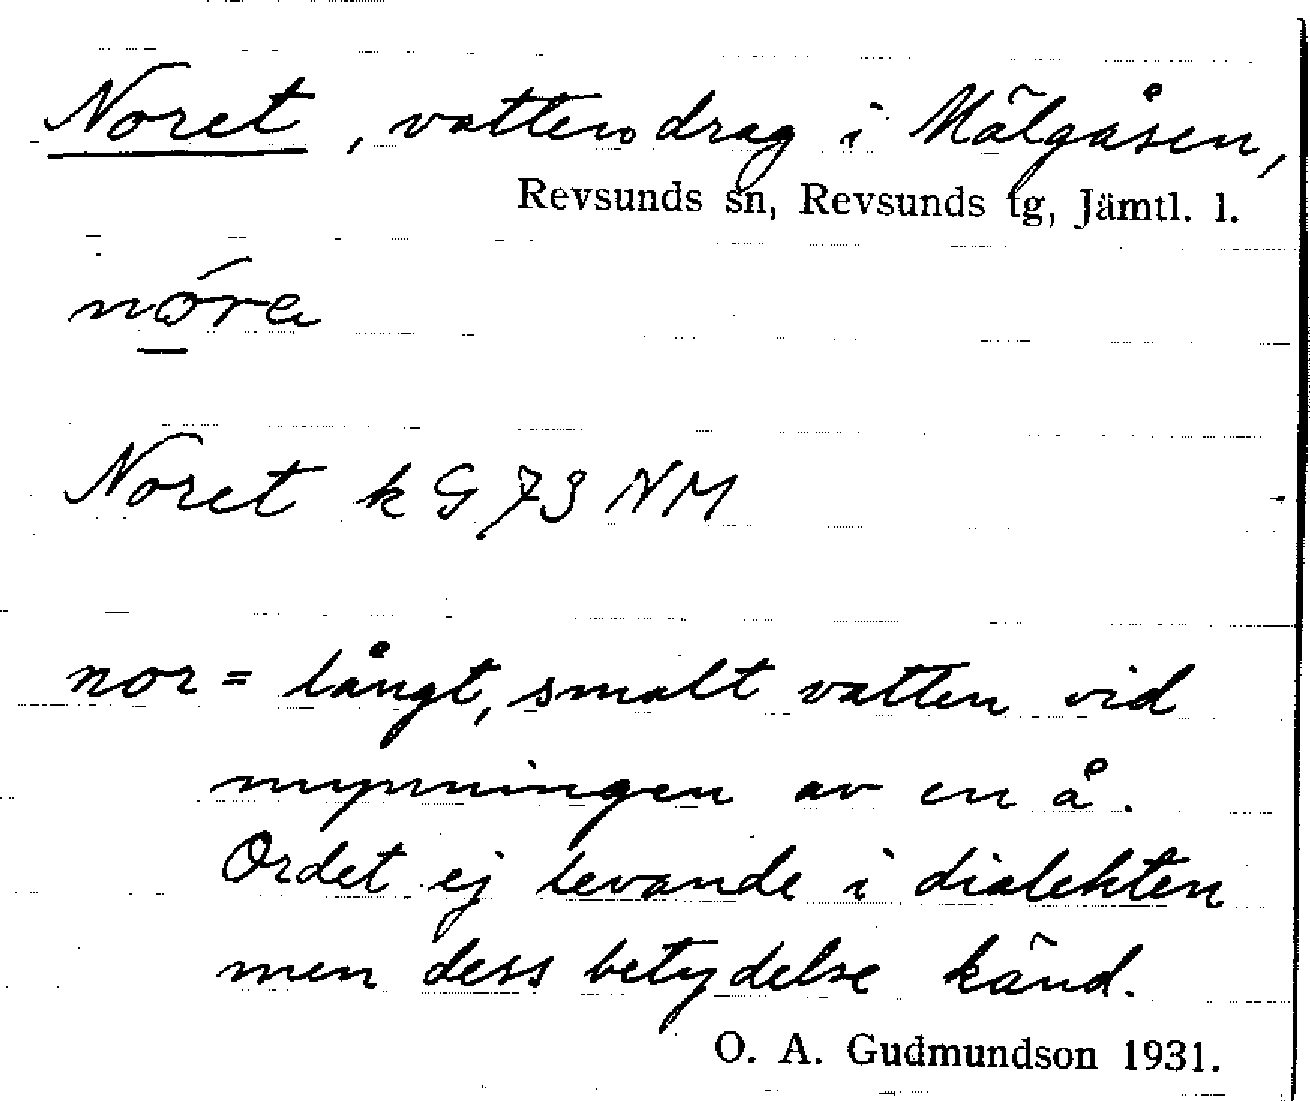 Noret, vattendrag i Mälgåsen,
Revsunds sn, Revsunds tg, Jämtl. l.
nóra
Noret k G 73 NM
nor = långt, smalt vatten vid
mynningen av en å.
Ordet ej levande i dialekten
men dess betydelse känd.
O. A. Gudmundson 1931.